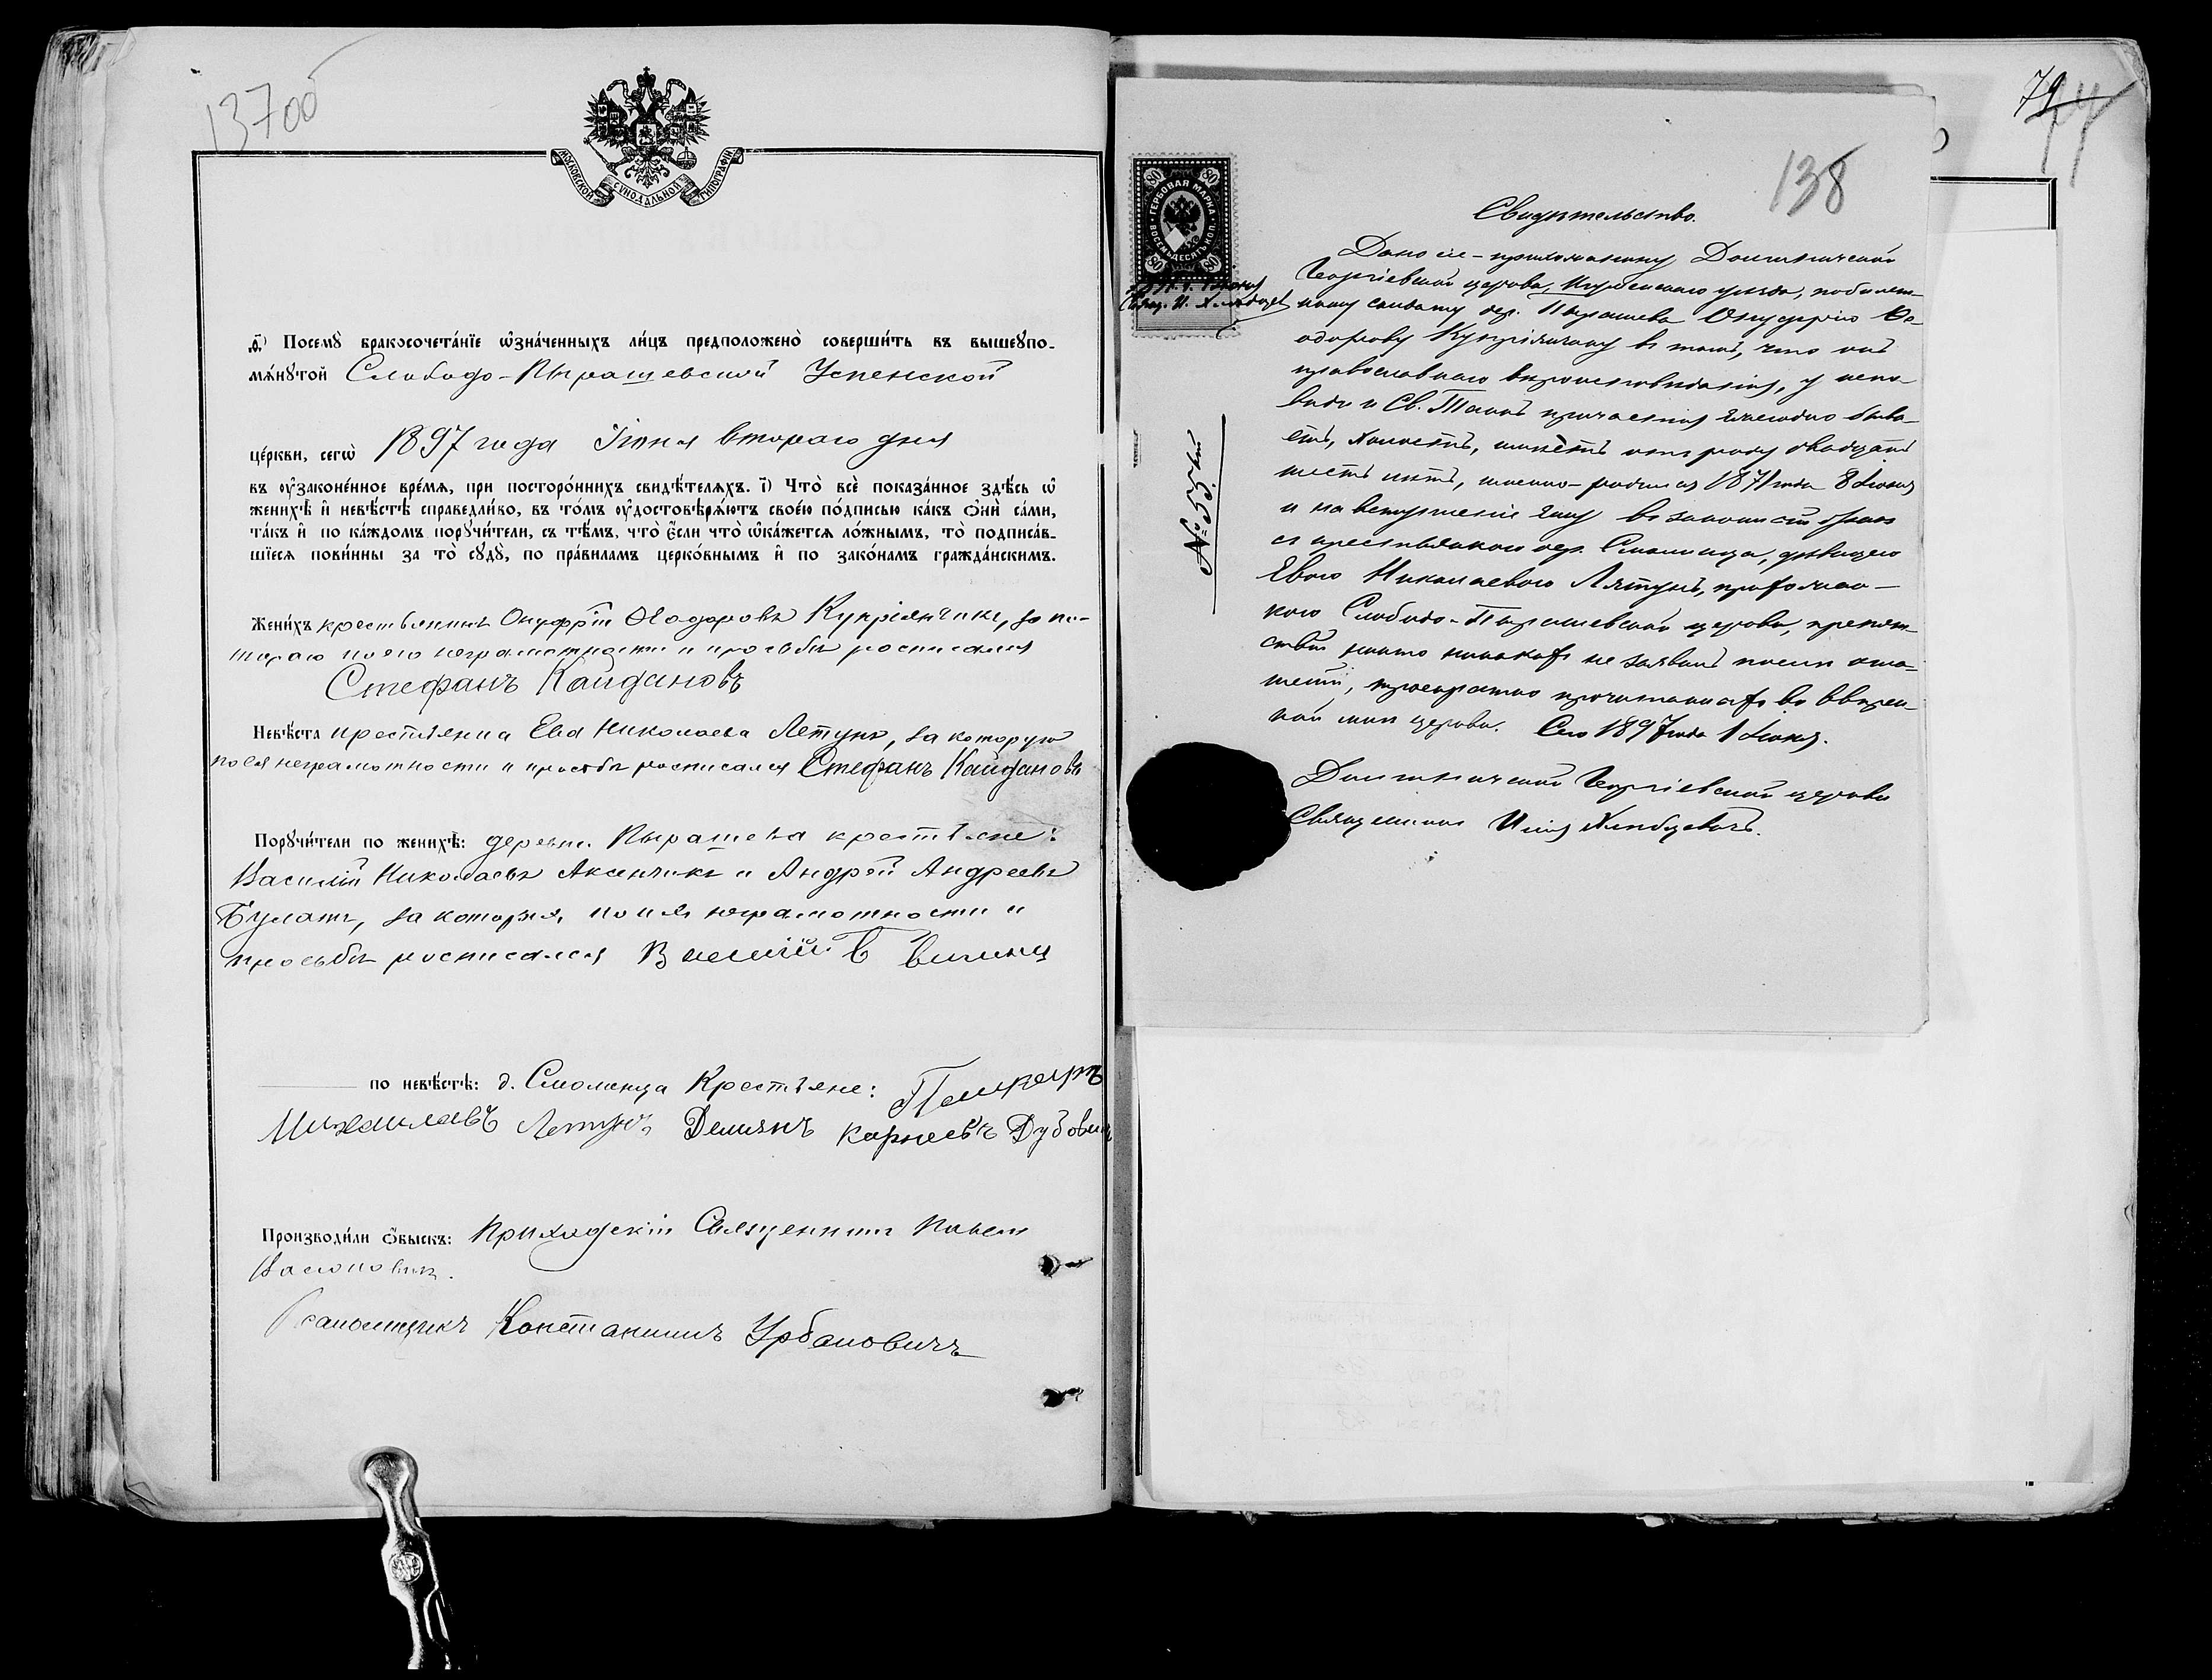 137 об
МОСКОВСКОЙ СѴНОДАЛЬНОЙ ТИПОГРАФІИ
ѳ҃) Посемꙋ̀ бракосочета́нїе ѡ҆зна́ченныхъ ли́цъ предположено̀ соверши́ть въ вышеꙋпо-
мѧ́нꙋтой Слободо-Пырашевской Успенской
це́ркви, сегѡ̀ 1897 года Іюня втораго дня
въ ᲂу҆законе́нное вре́мѧ, при посторо́ннихъ свидѣ́телѧхъ. і҃) Что̀ всѐ показа́нное здѣ́сь ѡ҆
женихѣ̀ и҆ невѣ́стѣ справедли́во, въ то́мъ ᲂу҆достовѣрѧ́ютъ свое́ю по́дписью ка́къ ѻ҆нѝ са́ми,
та́къ и҆ по ка́ждомъ порꙋчи́тели, съ тѣ́мъ, что̀ є҆́сли что̀ ѡ҆ка́жетсѧ ло́жнымъ, то̀ подписа́в-
шїесѧ пови́нны за то̀ сꙋдꙋ̀, по пра́виламъ церко́внымъ и҆ по зако́намъ гражда́нскимъ.
Жени́хъ крестьянинъ Онуфрій Ѳеодоровъ Купріянчикъ, за ко-
тораго по его неграмотности и просьбѣ росписался
Стефанъ Кайдановъ
Невѣ́ста крестьянка Ева Николаева Летунъ, за которую
по ея неграмотности и просьбѣ росписался Стефанъ Кайдановъ
Порꙋчи́тели по женихѣ̀: деревни Пырашева крестьяне:
Василій Николаевъ Аксенчикъ и Андрей Андреевъ
Булатъ, за которыхъ по ихъ неграмотности и
просьбѣ росписался Василій
по невѣ́стѣ: д. Смоленца Крестьяне:
Михаиловъ Летунъ Демянъ Корнеевъ
Производи́ли ѻ҆́быскъ: Приходскій Священникъ Павелъ
Псаломщикъ Константинъ Урбановичъ
79
138
ГЕРБОВАЯ МАРКА
ВОСЕМЬДЕСЯТЪ КОП.
80 80 80 80
1897 г. 1 Іюня
Свящ. И. Хлѣбцевичъ
№ 55-ый
Свидѣтельство.
Дано сіе - прихожанину
Георгіевской церкви, Игуменскаго уѣзда, побилет-
ному солдату дер. Пырашева Онуфрію Ѳе-
одорову Купріянчику въ томъ, что онъ
православнаго вѣроисповѣданія, у испо-
вѣди и Св. Таинъ причастія ежегодно быва-
етъ, холостъ, имѣетъ отъ роду двадцать
шесть лѣтъ, именно - родился 1871 года 8 Іюня
и на вступленіе ему въ законный бракъ
съ крестьянкою дер. Смоленца, дѣвицею
Евою Николаевою Лятунъ, прихожан-
кою Слободо-Пырашевской церкви, препят-
ствій никто никакихъ не заявилъ послѣ огла-
шеній, троекратно прочитанныхъ во ввѣрен-
ной мнѣ церкви. Сего 1897 года 1 Іюня.
Георгіевской церкви
Священникъ Илія Хлѣбцевичъ.